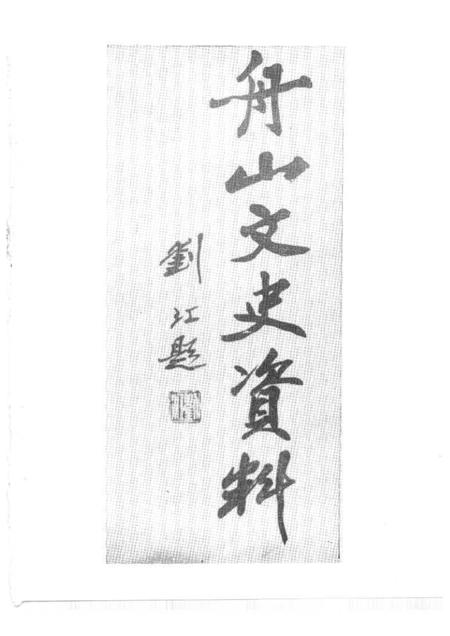 舟山文史資料
劉江題